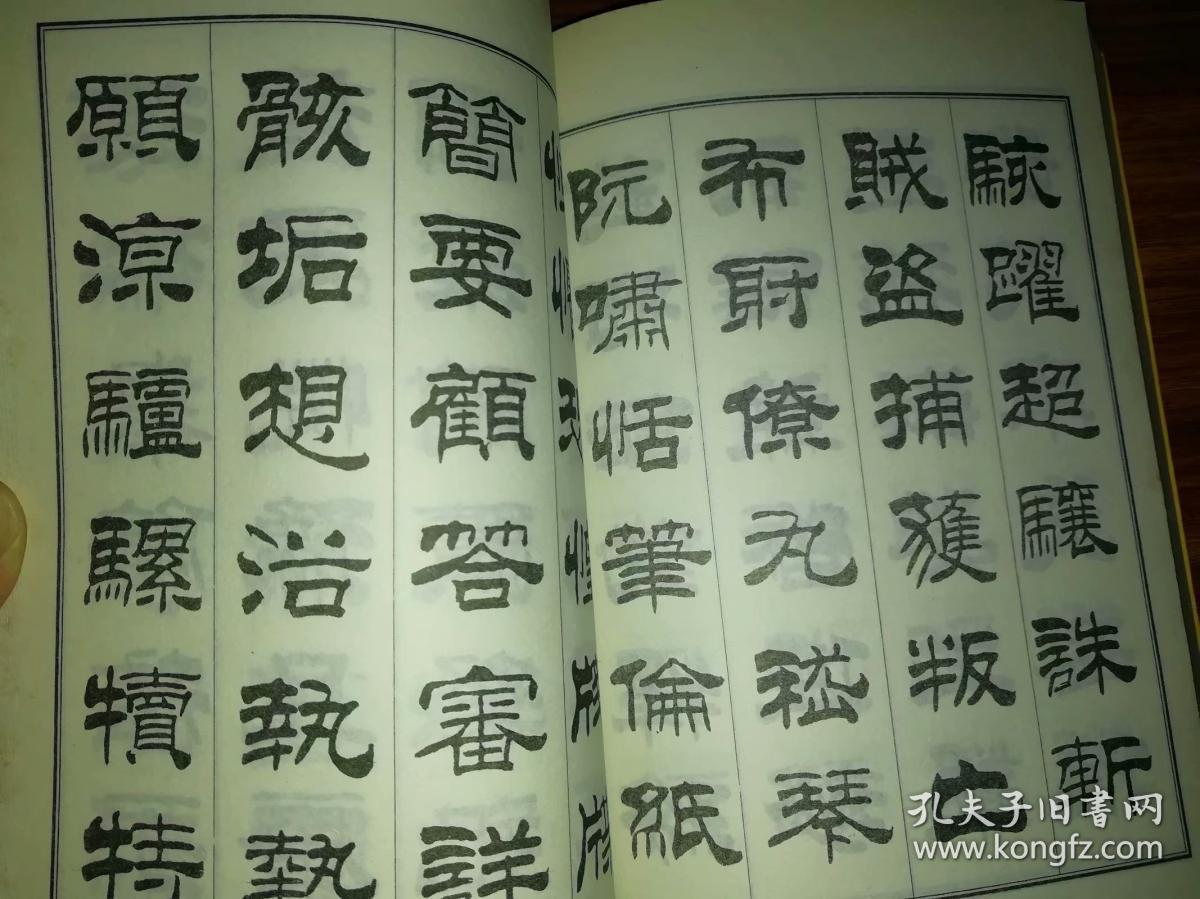 簡要顧答審詳
骸垢想浴執熱
願涼驢騾犢特
駭躍超驤誅斬
賊盜捕獲叛亡
布射僚丸嵇琴
阮嘯恬筆倫紙
孔夫子旧书网
www.kongfz.com